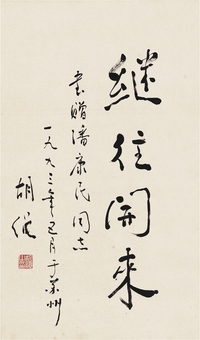 继往開來
书赠潘康民同志
一九九三年五月于苏州
胡绳